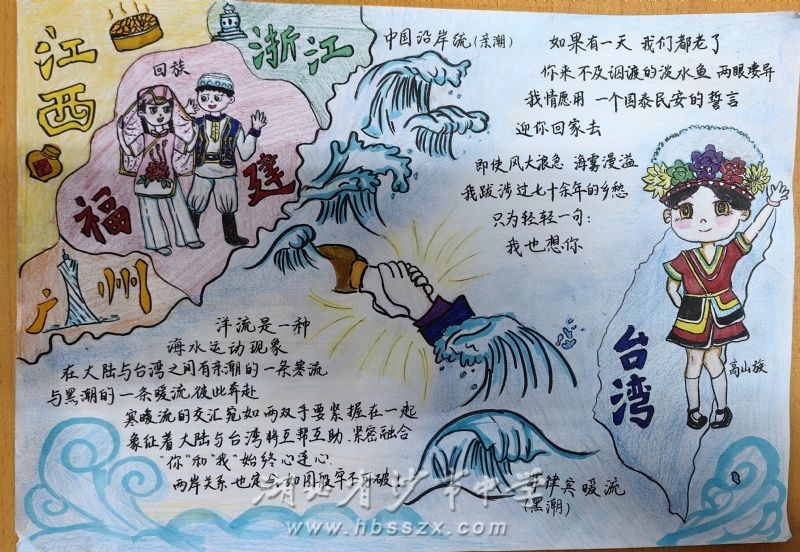 江西
浙江
回族
福建
广州
中国沿岸流(亲潮)
如果有一天 我们都老了
你来不及泅渡的淡水鱼 两眼凄异
我情愿用 一个国泰民安的誓言
迎你回家去
即使风大浪急 海雾漫溢
我跋涉过七十余年的乡愁
只为轻轻一句:
我也想你
台湾
高山族
洋流是一种
海水运动现象
在大陆与台湾之间有亲潮的一条寒流
与黑潮的一条暖流,彼此奔赴
寒暖流的交汇宛如两双手要紧握在一起
象征着大陆与台湾将互帮互助,紧密融合
"你"和"我"始终心连心
两岸关系也定与如固般牢不可破!
律宾暖流
(黑潮)
湖北省沙市中学
www.hbsszx.com